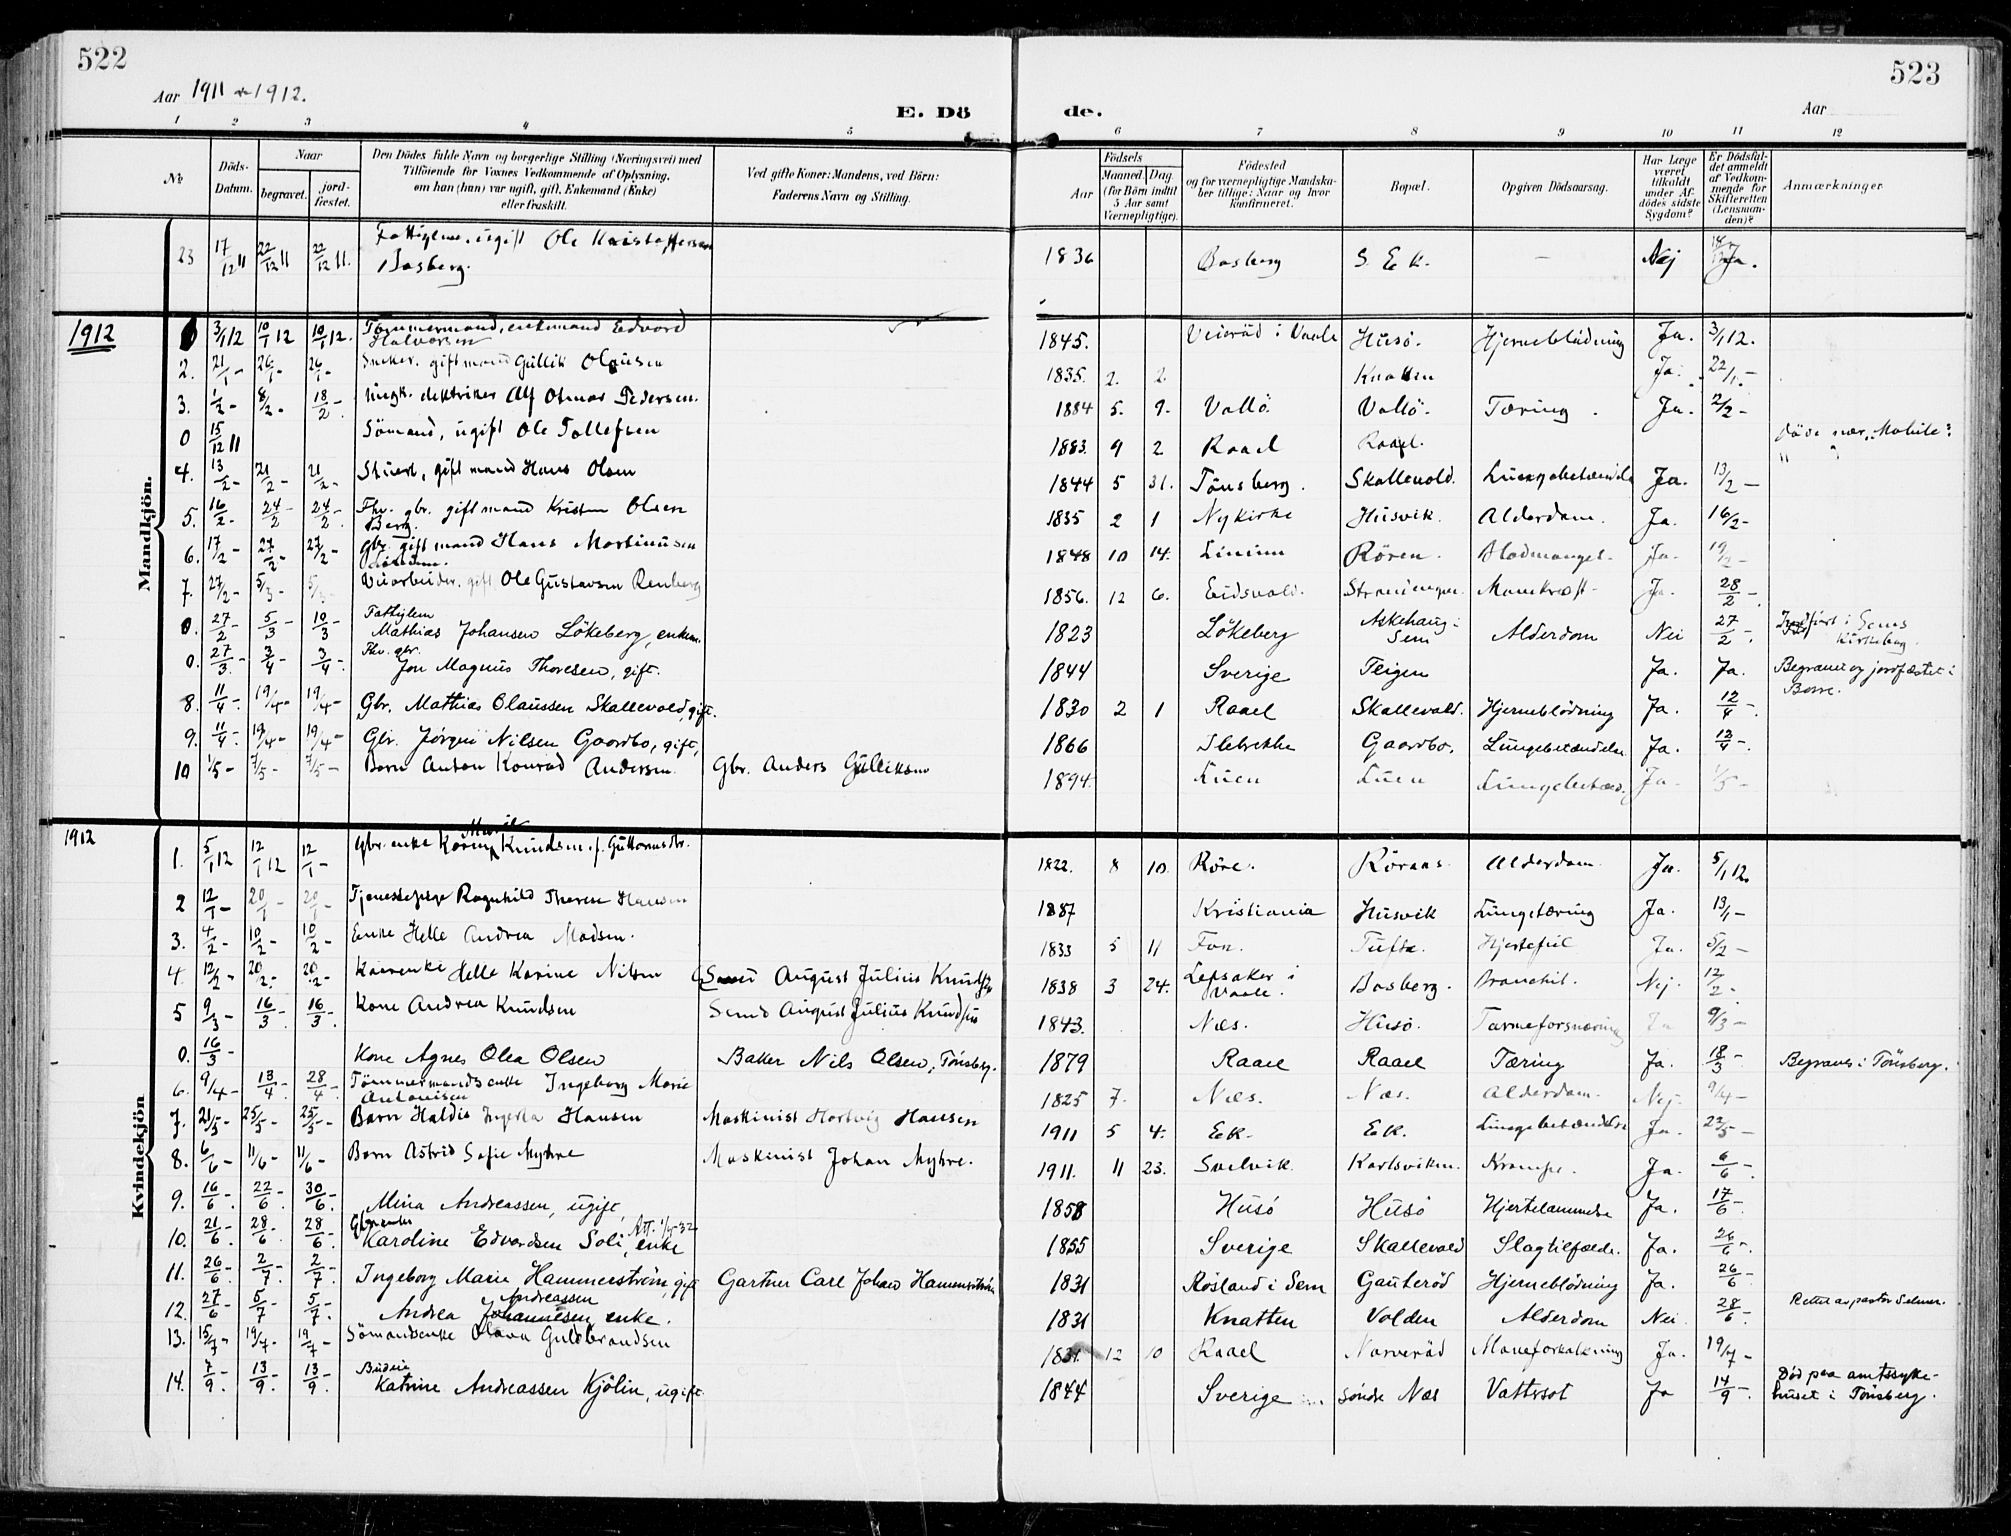 522
523
Aar 1911 & 1912.
E. Dö de.
Aar
1 2 3 4 5 6 7 8 9 10 11 12
No
Döds-Datum.
Naar
begravet.
jord-fæstet.
Den Dödes fulde Navn og borgerlige Stilling (Næringsvei) med
Tilföiende for Voxnes Vedkommende af Oplysning,
om han (hun) var ugift, gift, Enkemand (Enke)
eller fraskilt.
Ved gifte Koner: Mandens, ved Börn:
Faderens Navn og Stilling.
Födsels
Aar
Maaned.
Dag.
(for Börn indtil
5 Aar samt
Værnepligtige).
Födested
og for værnepligtige Mandska-
ber tillige: Naar og hvor
konfirmeret.
Bopæl.
Opgiven Dödsaarsag.
Har Læge
været
tilkaldt
under Af-
dödes sidste
Sygdom?
Er Dödsfal-
det anmeldt
af Vedkom-
mende for
Skifteretten
(Lensman-
den)?
Anmærkninger
Mandkjön.
23 17/12 11 22/12 11 22/12 11. Fattiglem, ugift Ole Kristoffersen Basberg. 1836 Basberg S. Ek. — Nej Ja.
1912
3/1 12 10/1 12 10/1 12. Tömmermand, enkemand Edvard Halvorsen 1845. i Vaale Husö. Hjerneblödning Ja. 3/1 12.
2. 21/1 - 26/1 - 26/1 - giftmand Gullik Olausen 1835. 2. 2. Knatten Ja. 22/1 -
3. 1/2 - 8/2 - 18/2 - Ungk. elektriker Alf Otmar Pedersen. 1884 5. 9. Vallö. Vallö. Tæring. Ja. 2/2 -
0 15/12 11 Sömand, ugift Ole Tollefsen 1883. 9 2 Raael Raael. Döde nær „Mobile"
4. 13/2 - 21/2 - 21/2 - Stuert, gift mand Hans Olsen 1844 5 31. Tönsberg. Skallevold. Ja. 13/2 -
5. 16/2 - 24/2 - 24/2 - Fhv. gbr. gift mand Kristen Olsen Berg. 1835 2 1 Nykirke Husvik. Alderdom. Ja. 16/2 -
6. 17/2 - 27/2 - 27/2 - Gbr. gift mand Hans Martinusen 1848 10 14. Linium Rören. Blodmangel. Ja. 19/2 -
7. 27/2 - 5/3 - 5/3 - Veiarbeider. gift Ole Gustavsen Renberg 1856. 12 6. Eidsvold. Mavekræft - Ja. 28/2 -
0. 27/2 - 5/3 - 10/3 - Fattiglem Mathias Johansen Lökeberg, enkem. 1823 Lökeberg Askehaug - Sem Alderdom Nei 27/2 - Jordfæst i Sems Kirkeberg.
0. 27/3 - 3/4 - 3/4 - Fhv. gbr. Jon Magnus Thoresen, gift. 1844 Sverige Teigen Ja. Ja. Begravet og jordfæstet i Borre.
8. 11/4 - 19/4 - 19/4 - Gbr. Mathias Olaussen Skallevold, gift. 1830 2 1 Raael Skallevold. Hjerneblödning Ja. 12/4 -
9. 11/4 - 19/4 - 19/4 - Gbr. Jörgen Nilsen Gaardbo, gift, 1866 Ilebrekke Gaardbo. Lungebetændelse Ja. 12/4 -
10 1/5 - 7/5 - 7/5 - Barn Anton Konrad Andersen. Gbr. Anders Gulliksen 1894. Luen Luen Lungebetænd. Ja. 1/5 -
1912
Kvindekjön
1. 5/1 12 12/1 12 12/1 - Gbr. enke Karen Marie Knudsen. f. Guttormsdtr. 1822. 8 10. Röre. Röraas Alderdom. Ja. 5/1 12.
2 12/1 - 20/1 - 20/1 - Tjenestepige Ragnhild Therese Hansen 1887 Kristiania Husvik Lungetæring Ja. 13/1 -
3. 4/2 - 10/2 - 10/2 - Enke Helle Andrea Madsen. 1833 5 11 Fon. Tufte. Hjertefeil Ja. 5/2 -
4. 12/2 - 20/2 - 20/2 - Helle Karine Nilsen August Julius Knudsen 1838 3 24. Lefsaker i Vaale. Basberg. Bronchit. Nej. 12/2 -
5 9/3 - 16/3 - 16/3 - Kone Andrea Knudsen August Julius Knudsen 1843. Næs. Husö. Tarmeforsnævring Ja 9/3 -
0. 16/3 - Kone Agnes Olea Olsen Baker Nils Olsen, Tönsberg. 1879 Raael Raael Tæring Ja. 18/3 - Begraves i Tönsberg.
6. 9/4 - 13/4 - 28/4 - Tömmermandsenke Ingeborg Marie Antonisen 1825 7. Næs. Næs. Alderdom. Nej. 9/4 -
7. 21/5 - 25/5 - 25/5 - Barn Haldis Hansen Maskinist Hartvig Hansen 1911 5 4. Ek. Ek. Lungebetændelse Ja. 22/5 -
8. 6/6 - 11/6 - 11/6 - Barn Astrid Sofie Myhre Maskinist Johan Myhre. 1911. 11 23. Svelvik. Karlsviken. Krampe. Ja. 6/6 -
9. 16/6 - 22/6 - 30/6 - Mina Andreassen, ugift, 1858 Husö Husö Hjertelammelse Ja. 17/6 -
10. 21/6 - 28/6 - 28/6 - Karoline Edvardsen Soli, enke 1855 Sverige Skallevold Slagtilfælde. Ja. 26/6 -
11. 26/6 - 2/7 - 2/7 - Ingeborg Marie Hammerström, gift Gartner Carl Johan Hammerström 1831 Rosland i Sem Gauteröd Hjerneblödning Ja. 26/6 -
12. 27/6 - 5/7 - 5/7 - Andrea Johannesen Andreassen enke. 1831 Knatten Volden Alderdom Nei 28/6 - Rettet av pastor Selmer.
13. 15/7 - 19/7 - 19/7 - Sömandsenke Olava Guldbrandsen 1831. 12 10 Raael Narveröd Maveforkalkning Ja. 19/7 -
14. 7/9 - 13/9 - 13/9 - Budeie Katrine Andreassen Kjölin, ugift 1844 Sverige Söndre Næs Vattersot Ja 14/9 - Död paa amtssyke-huset i Tönsberg.